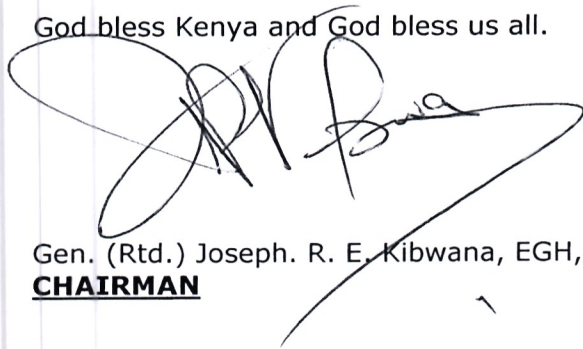 God bless Kenya and God bless us all.
Gen. (Rtd.) Joseph. R. E. Kibwana, EGH,
CHAIRMAN